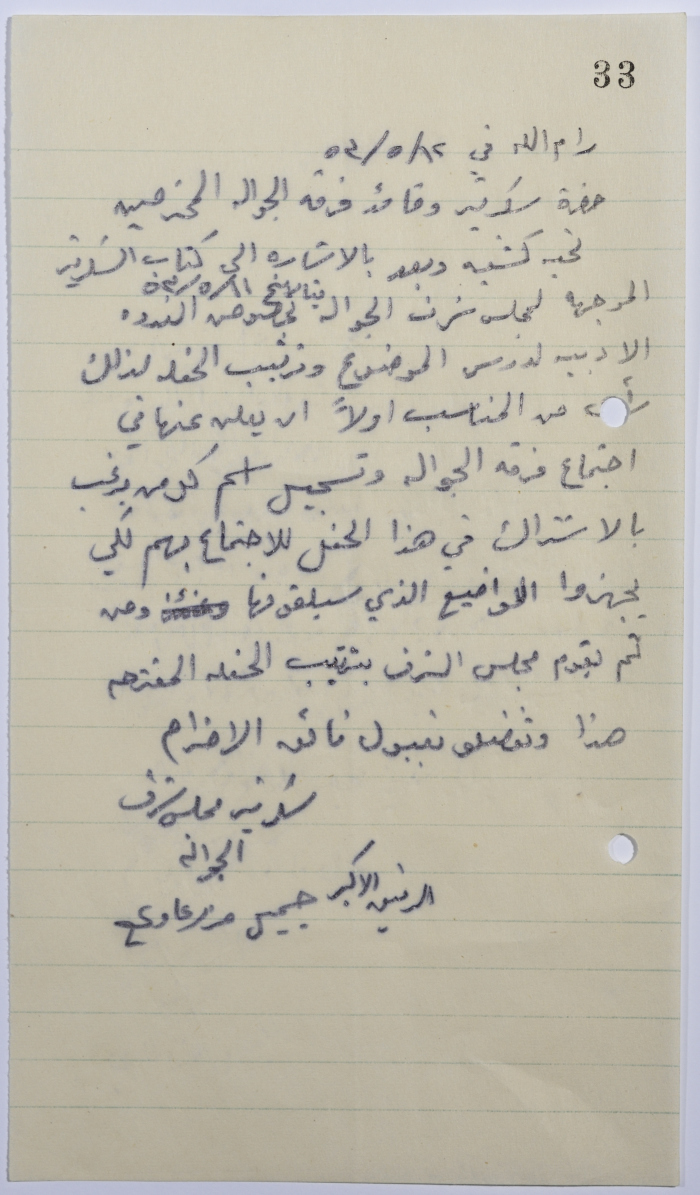 33
رام الله في ٥٣/٥/١٢
حضرة سكرتير وقائد فرقة الجواله المحترمين
تحيه كشفيه وبعد بالاشاره الى كتاب السكرتير
الموجهه لمجلس شرف الجواله بتاريخ ٥٣/٥/١١ بخصوص الندوه
الادبيه لدرس الموضوع وترتيب الحفله لذلك
من المناسب اولاً ان يعلن عنها في
اجتماع فرقه الجواله وتسجيل اسم كل من يرغب
بالاشتراك في هذا الحفل للاجتماع بهم لكي
يجهزوا المواضيع الذي سيلقونها ومن
ثم يقوم مجلس الشرف بترتيب الحفله المقترحه
هذا وتفضلو بقبول فائق الاحترام
سكرتير مجلس شرف
الجواله
الرئيس الاكبر جميل